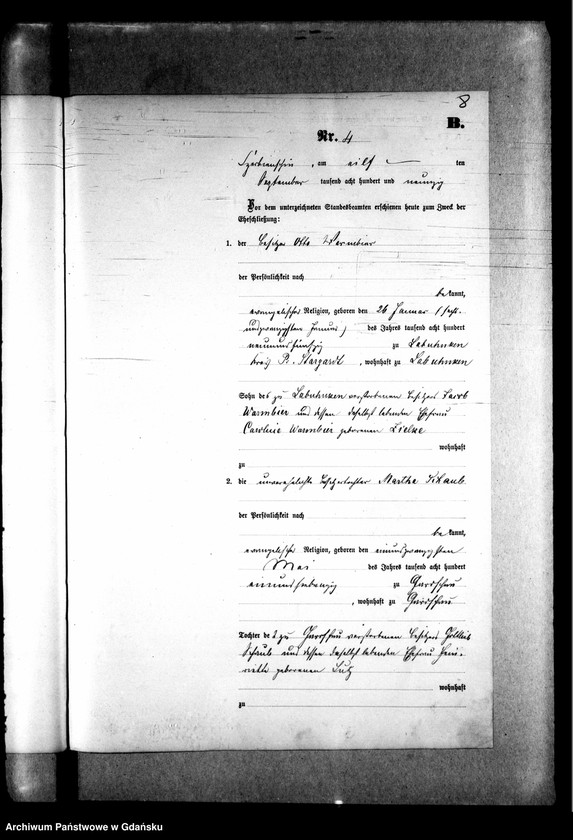 8
B.
Nr. 4
am eilf ten
September tausend acht hundert und neunzig
Vor dem unterzeichneten Standesbeamten erschienen heute zum Zweck der
Eheschließung:
1. der Besitzer Otto Warmbier
der Persönlichkeit nach
be kannt,
evangelischer Religion, geboren den 26 Januar (sechs-
undzwanzigsten Januar) des Jahres tausend acht hundert
neunundfünfzig zu Labuhnken
Kreis Pr. Stargardt, wohnhaft zu Labuhnken
Sohn des zu Labuhnken verstorbenen Besitzers Jacob
Warmbier und dessen daselbst lebenden Ehefrau
Caroline Warmbier geborenen
wohnhaft
zu
2. die unverehelichte Besitzertochter Martha Schaub
der Persönlichkeit nach
be kannt,
evangelischer Religion, geboren den einundzwanzigsten
Mai des Jahres tausend acht hundert
einundsiebenzig zu Gardschau
, wohnhaft zu Gardschau
Tochter des zu Gardschau verstorbenen Besitzers Gottlieb
Schaub und dessen daselbst lebenden Ehefrau Hein-
riette geborenen
wohnhaft
zu
Archiwum Państwowe w Gdańsku